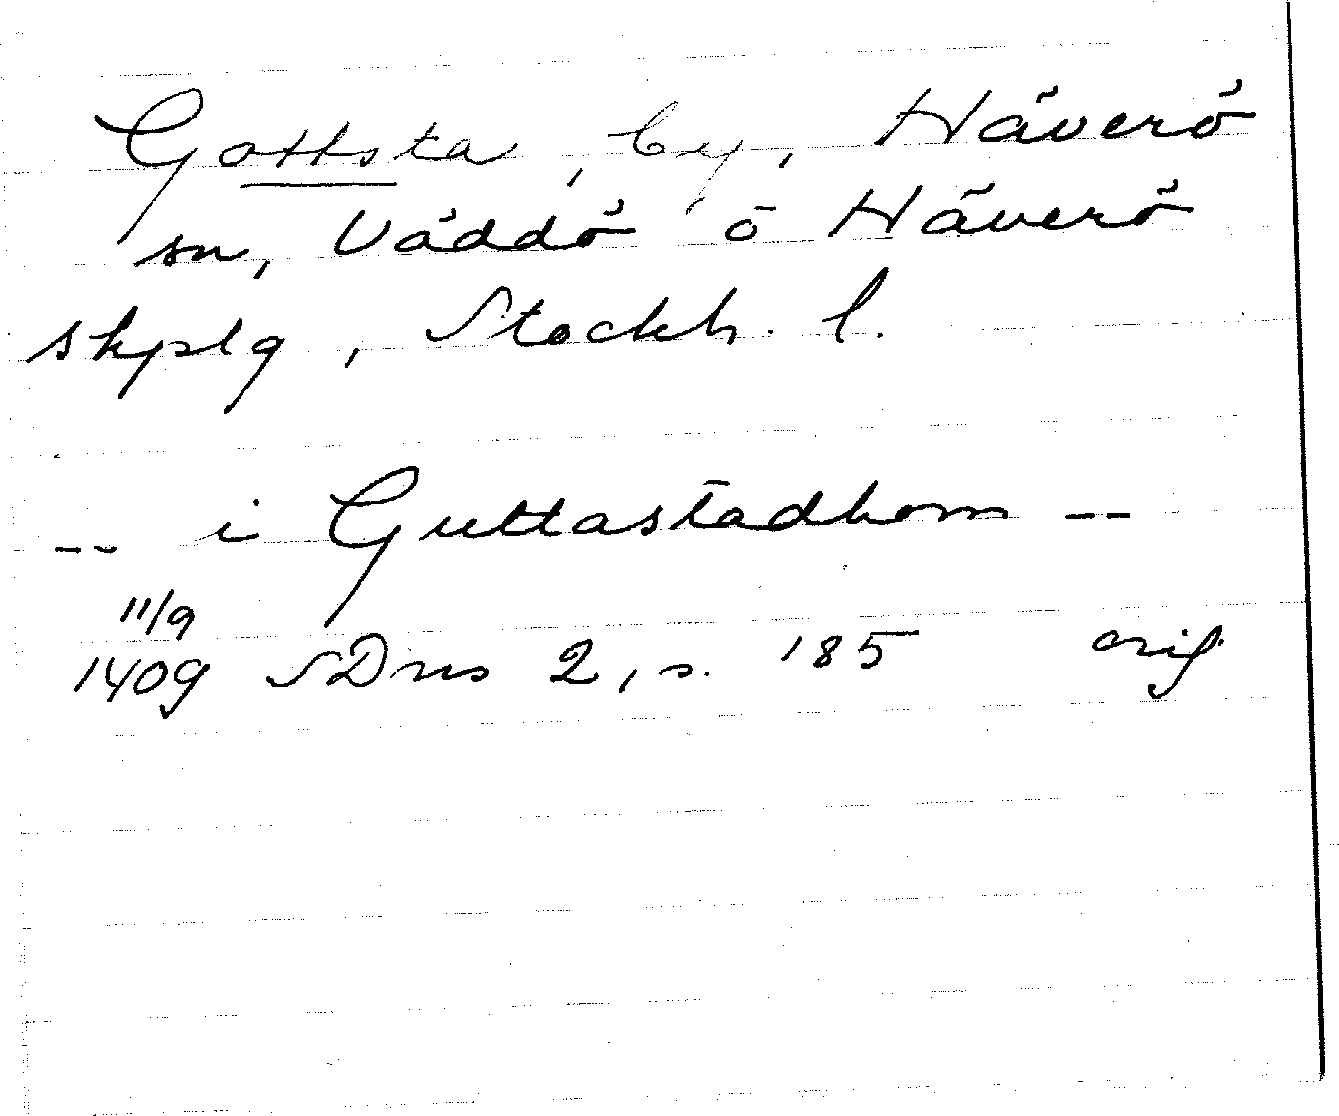 Gottsta, by, Häverö
sn, Väddö o Häverö
skplg, Stockh. l.
-- i Guttastadhom --
11/9
1409 SDns 2, s. 185 orig.